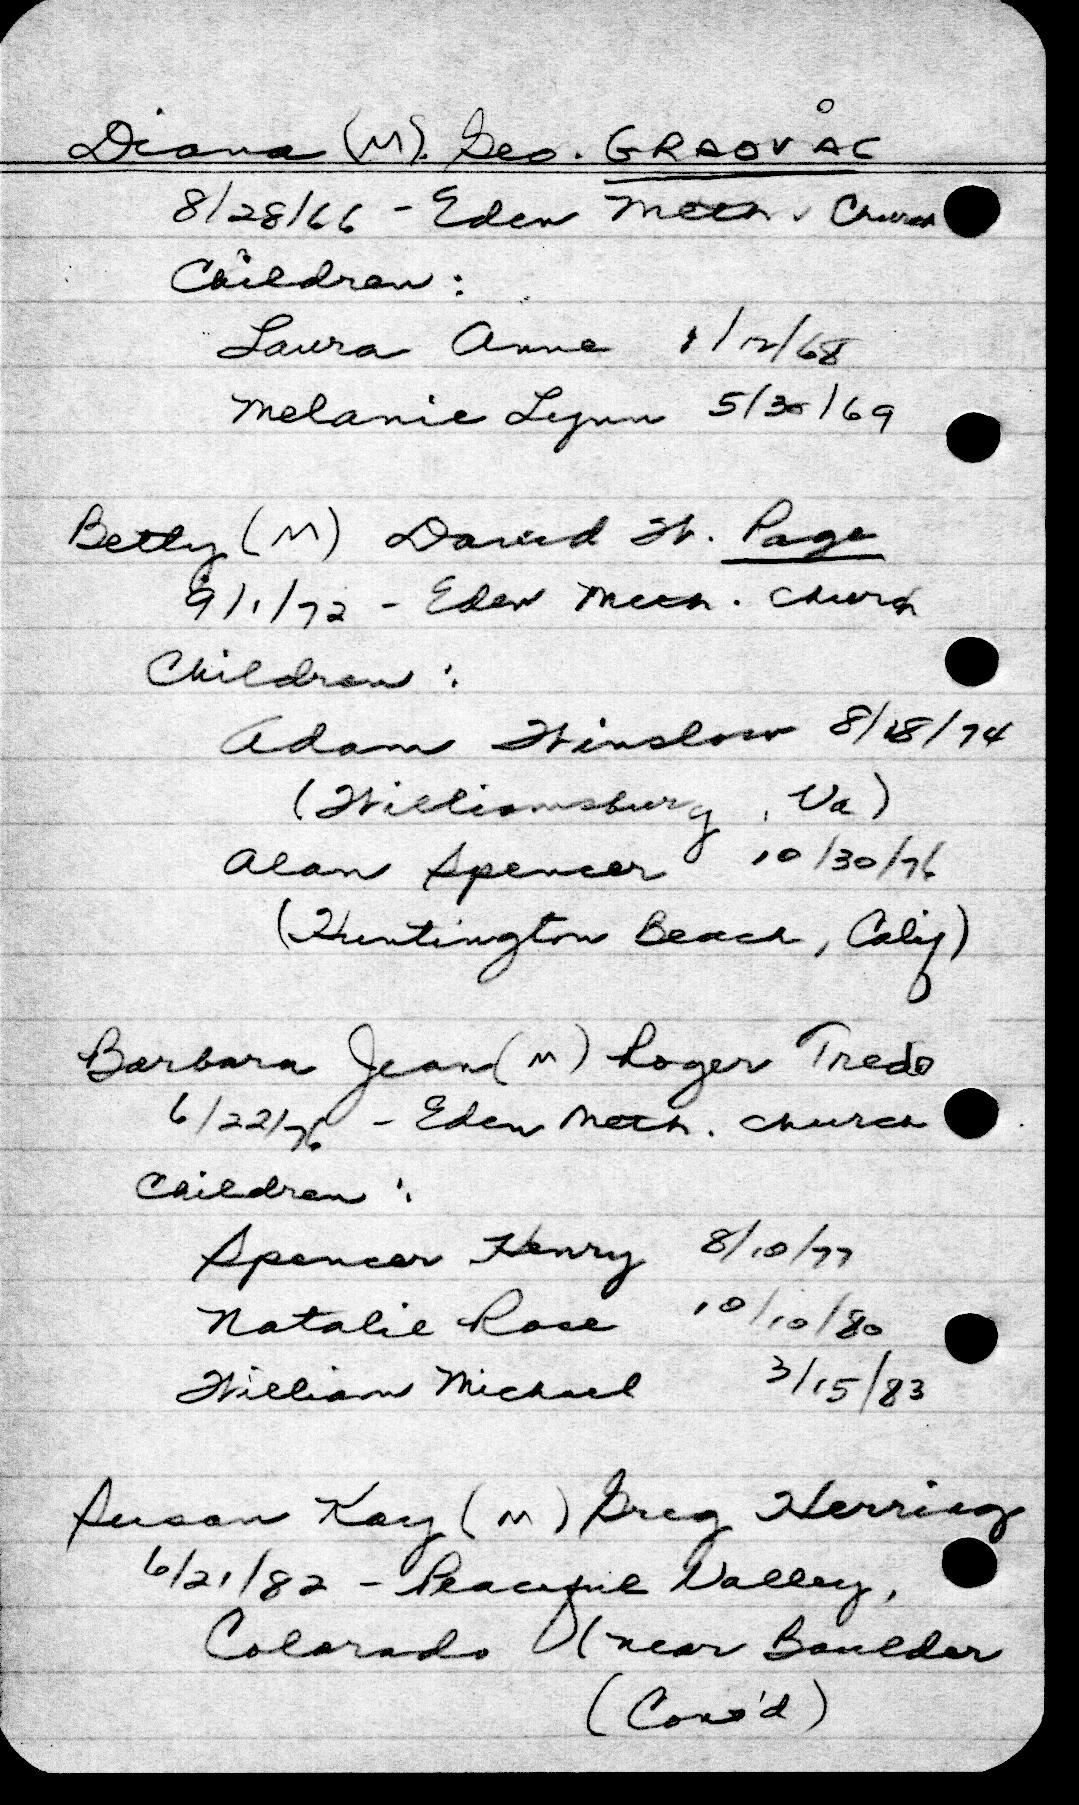 Diana (M). Geo. GRAOVAC
8/28/66 - Eden Meth. Church
Children:
Laura Anne 1/12/68
Melanie Lynn 5/30/69
Betty (M) David W. Page
9/1/72 - Eden Meth. Church
Children:
Adam Winslow 8/18/74
(Williamsburg, Va)
Alan Spencer 10/30/76
(Huntington Beach, Calif)
Barbara Jean (M) Roger Tredo
6/22/76 - Eden Meth. Church
Children:
Spencer Henry 8/10/77
Natalie Rose 10/10/80
William Michael 3/15/83
Susan Kay (M) Greg Herring
6/21/82 - Peaceful Valley,
Colorado (near Boulder
(Cont'd)